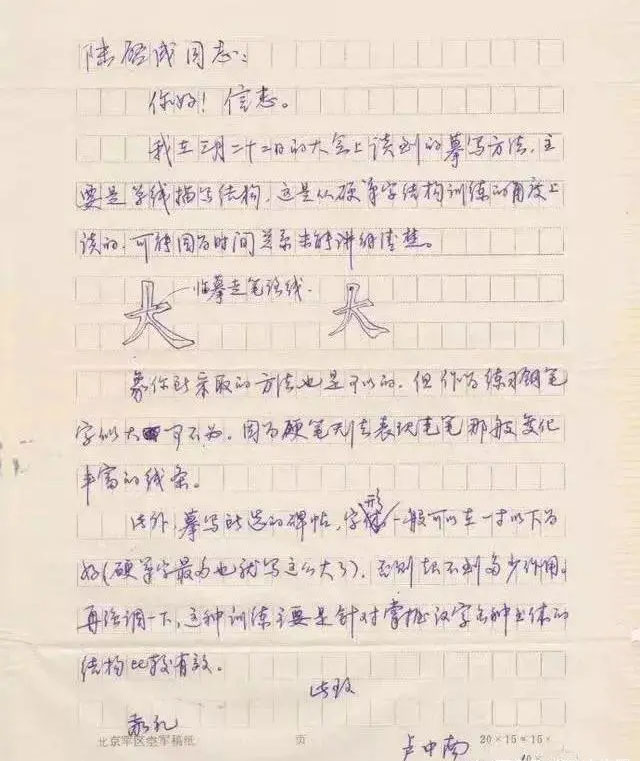 陆启成同志：
你好！信悉。
我在三月二十二日的大会上谈到的摹写方法，主
要是单线描写结构，这是从硬笔字结构训练的角度上
谈的，可能因为时间关系未能讲经清楚。
临摹走笔路线。
大 大
象你所采取的方法也是可以的，但作为练习钢笔
字似大可不必。因为硬笔无法表现毛笔那般变化
丰富的线条。
此外，摹写所选的碑帖，字形一般可以在一寸以下为
好（硬笔字最多也就写这么大了），否则起不到多少作用。
再强调一下，这种训练主要是针对掌握汉字各种书体的
结构比较有效。
此致
敬礼
卢中南
北京军区空军稿纸 页 20×15=15×